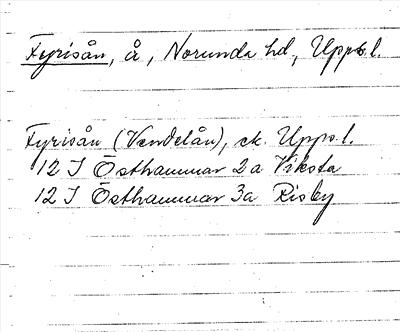 Fyrisån, å, Norunda hd, Upps. l.
Fyrisån (Vendelån), ek. Upps. l.
12 I Östhammar 2a Viksta
12 I Östhammar 3a Risby